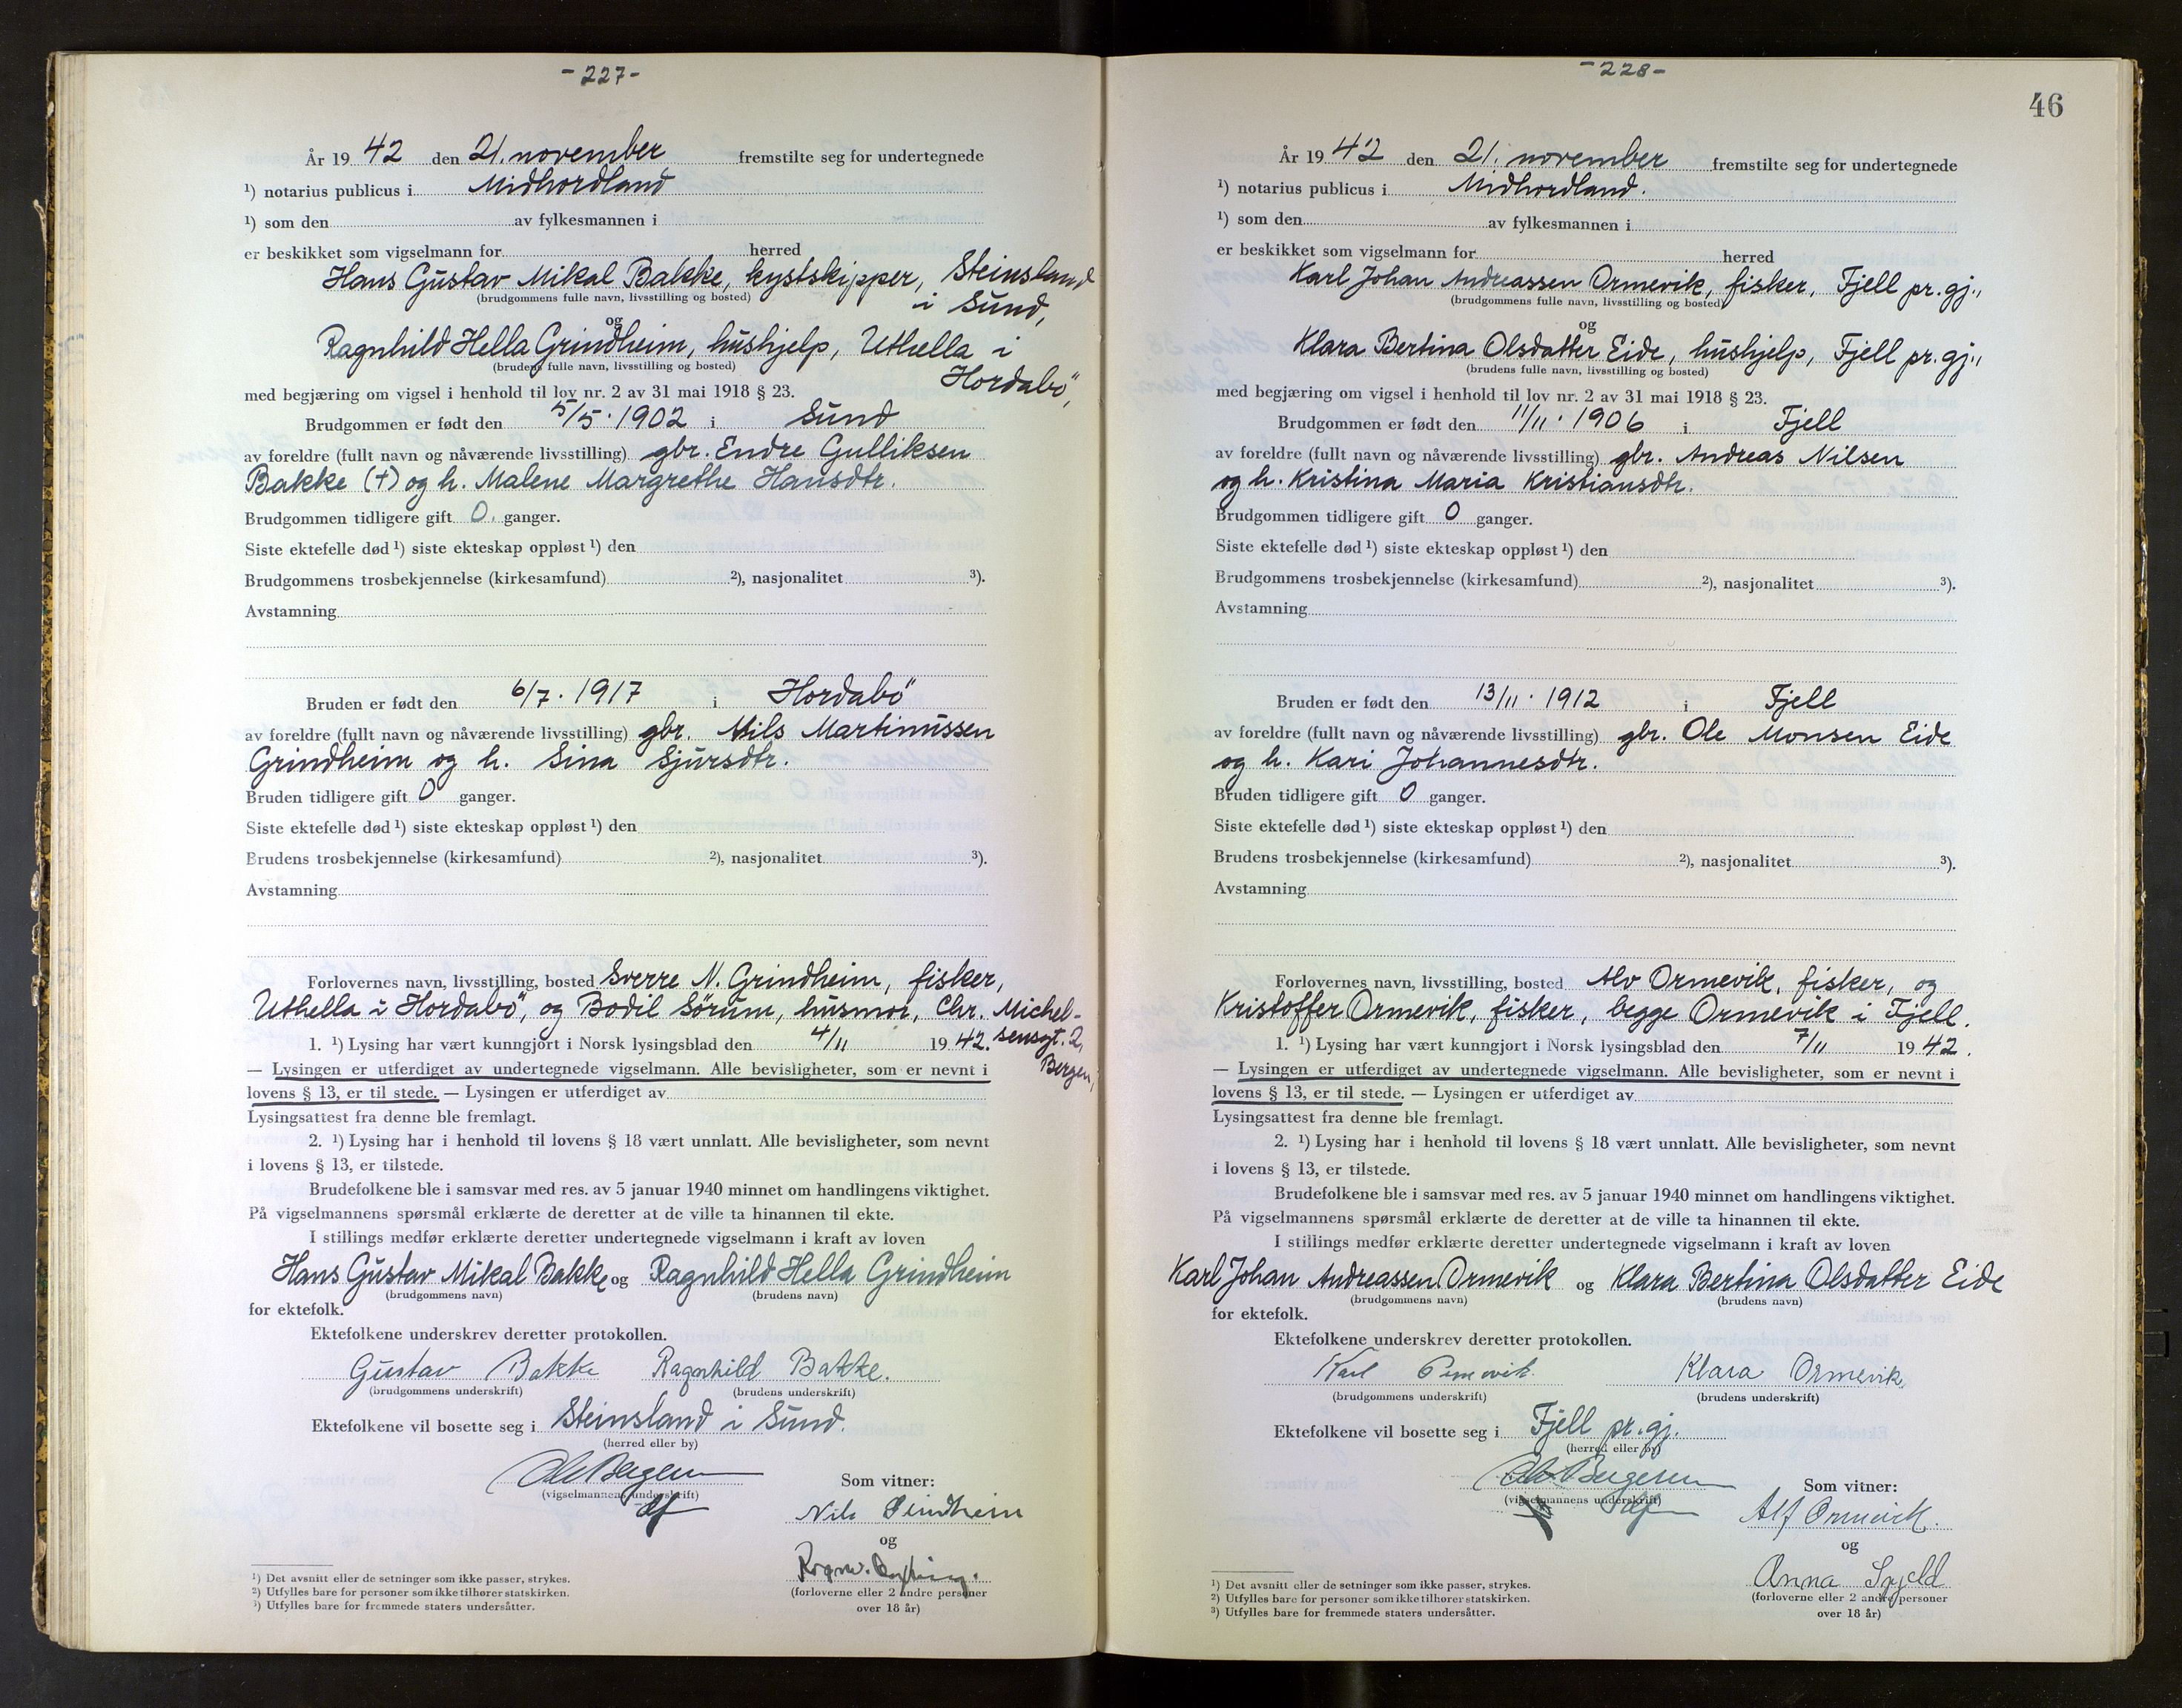 - 227 -
År 19 42 den 21. november fremstilte seg for undertegnede
¹) notarius publicus i Midhordland
¹) som den av fylkesmannen i
er beskikket som vigselmann for herred
Hans Gustav Mikal Bakke, kystskipper, Steinsland
(brudgommens fulle navn, livsstilling og bosted)
i Sund,
og
Ragnhild Hella Grindheim, hushjelp, Uthella i
(brudens fulle navn, livsstilling og bosted)
Hordabö,
med begjæring om vigsel i henhold til lov nr. 2 av 31 mai 1918 § 23.
Brudgommen er født den 5/5. 1902 i Sund
av foreldre (fullt navn og nåværende livsstilling) gbr. Endre Gulliksen
Bakke (+) og h. Malene Margrethe Hansdtr.
Brudgommen tidligere gift 0. ganger.
Siste ektefelle død ¹) siste ekteskap oppløst ¹) den
Brudgommens trosbekjennelse (kirkesamfund) ²), nasjonalitet ³).
Avstamning
Bruden er født den 6/7. 1917 i Hordabö
av foreldre (fullt navn og nåværende livsstilling) gbr. Nils Martinussen
Grindheim og h. Sina Sjursdtr.
Bruden tidligere gift 0 ganger.
Siste ektefelle død ¹) siste ekteskap oppløst ¹) den
Brudens trosbekjennelse (kirkesamfund) ²), nasjonalitet ³).
Avstamning
Forlovernes navn, livsstilling, bosted Sverre N. Grindheim, fisker,
Uthella i Hordabö, og Bodil Sörum, husmor, Chr. Michel-
1. ¹) Lysing har vært kunngjort i Norsk lysingsblad den 4/11 19 42. sensgt. 2,
Bergen,
— Lysingen er utferdiget av undertegnede vigselmann. Alle bevisligheter, som er nevnt i
lovens § 13, er til stede. — Lysingen er utferdiget av
Lysingsattest fra denne ble fremlagt.
2. ¹) Lysing har i henhold til lovens § 18 vært unnlatt. Alle bevisligheter, som nevnt
i lovens § 13, er tilstede.
Brudefolkene ble i samsvar med res. av 5 januar 1940 minnet om handlingens viktighet.
På vigselmannens spørsmål erklærte de deretter at de ville ta hinannen til ekte.
I stillings medfør erklærte deretter undertegnede vigselmann i kraft av loven
Hans Gustav Mikal Bakke og Ragnhild Hella Grindheim
(brudgommens navn) (brudens navn)
for ektefolk.
Ektefolkene underskrev deretter protokollen.
Gustav Bakke Ragnhild Bakke.
(brudgommens underskrift) (brudens underskrift)
Ektefolkene vil bosette seg i Steinsland i Sund.
(herred eller by)
(vigselmannens underskrift)
Som vitner:
Nils Grindheim
og
(forloverne eller 2 andre personer
over 18 år)
¹) Det avsnitt eller de setninger som ikke passer, strykes.
²) Utfylles bare for personer som ikke tilhører statskirken.
³) Utfylles bare for fremmede staters undersåtter.
- 228 -
46
År 19 42 den 21. november fremstilte seg for undertegnede
¹) notarius publicus i Midhordland.
¹) som den av fylkesmannen i
er beskikket som vigselmann for herred
Karl Johan Andreassen Ormevik, fisker, Fjell pr. gj.,
(brudgommens fulle navn, livsstilling og bosted)
og
Klara Bertina Olsdatter Eide, hushjelp, Fjell pr. gj.,
(brudens fulle navn, livsstilling og bosted)
med begjæring om vigsel i henhold til lov nr. 2 av 31 mai 1918 § 23.
Brudgommen er født den 11/11. 1906 i Fjell
av foreldre (fullt navn og nåværende livsstilling) gbr. Andreas Nilsen
og h. Kristina Maria Kristiansdtr.
Brudgommen tidligere gift 0 ganger.
Siste ektefelle død ¹) siste ekteskap oppløst ¹) den
Brudgommens trosbekjennelse (kirkesamfund) ²), nasjonalitet ³).
Avstamning
Bruden er født den 13/11. 1912 i Fjell
av foreldre (fullt navn og nåværende livsstilling) gbr. Ole Monsen Eide
og h. Kari Johannesdtr.
Bruden tidligere gift 0 ganger.
Siste ektefelle død ¹) siste ekteskap oppløst ¹) den
Brudens trosbekjennelse (kirkesamfund) ²), nasjonalitet ³).
Avstamning
Forlovernes navn, livsstilling, bosted Alv Ormevik, fisker, og
Kristoffer Ormevik, fisker, begge Ormevik i Fjell.
1. ¹) Lysing har vært kunngjort i Norsk lysingsblad den 7/11 19 42.
— Lysingen er utferdiget av undertegnede vigselmann. Alle bevisligheter, som er nevnt i
lovens § 13, er til stede. — Lysingen er utferdiget av
Lysingsattest fra denne ble fremlagt.
2. ¹) Lysing har i henhold til lovens § 18 vært unnlatt. Alle bevisligheter, som nevnt
i lovens § 13, er tilstede.
Brudefolkene ble i samsvar med res. av 5 januar 1940 minnet om handlingens viktighet.
På vigselmannens spørsmål erklærte de deretter at de ville ta hinannen til ekte.
I stillings medfør erklærte deretter undertegnede vigselmann i kraft av loven
Karl Johan Andreassen Ormevik og Klara Bertina Olsdatter Eide
(brudgommens navn) (brudens navn)
for ektefolk.
Ektefolkene underskrev deretter protokollen.
Karl Ormevik. Klara Ormevik.
(brudgommens underskrift) (brudens underskrift)
Ektefolkene vil bosette seg i Fjell pr. gj.
(herred eller by)
(vigselmannens underskrift)
Som vitner:
Alf Ormevik.
og
Anna
(forloverne eller 2 andre personer
over 18 år)
¹) Det avsnitt eller de setninger som ikke passer, strykes.
²) Utfylles bare for personer som ikke tilhører statskirken.
³) Utfylles bare for fremmede staters undersåtter.